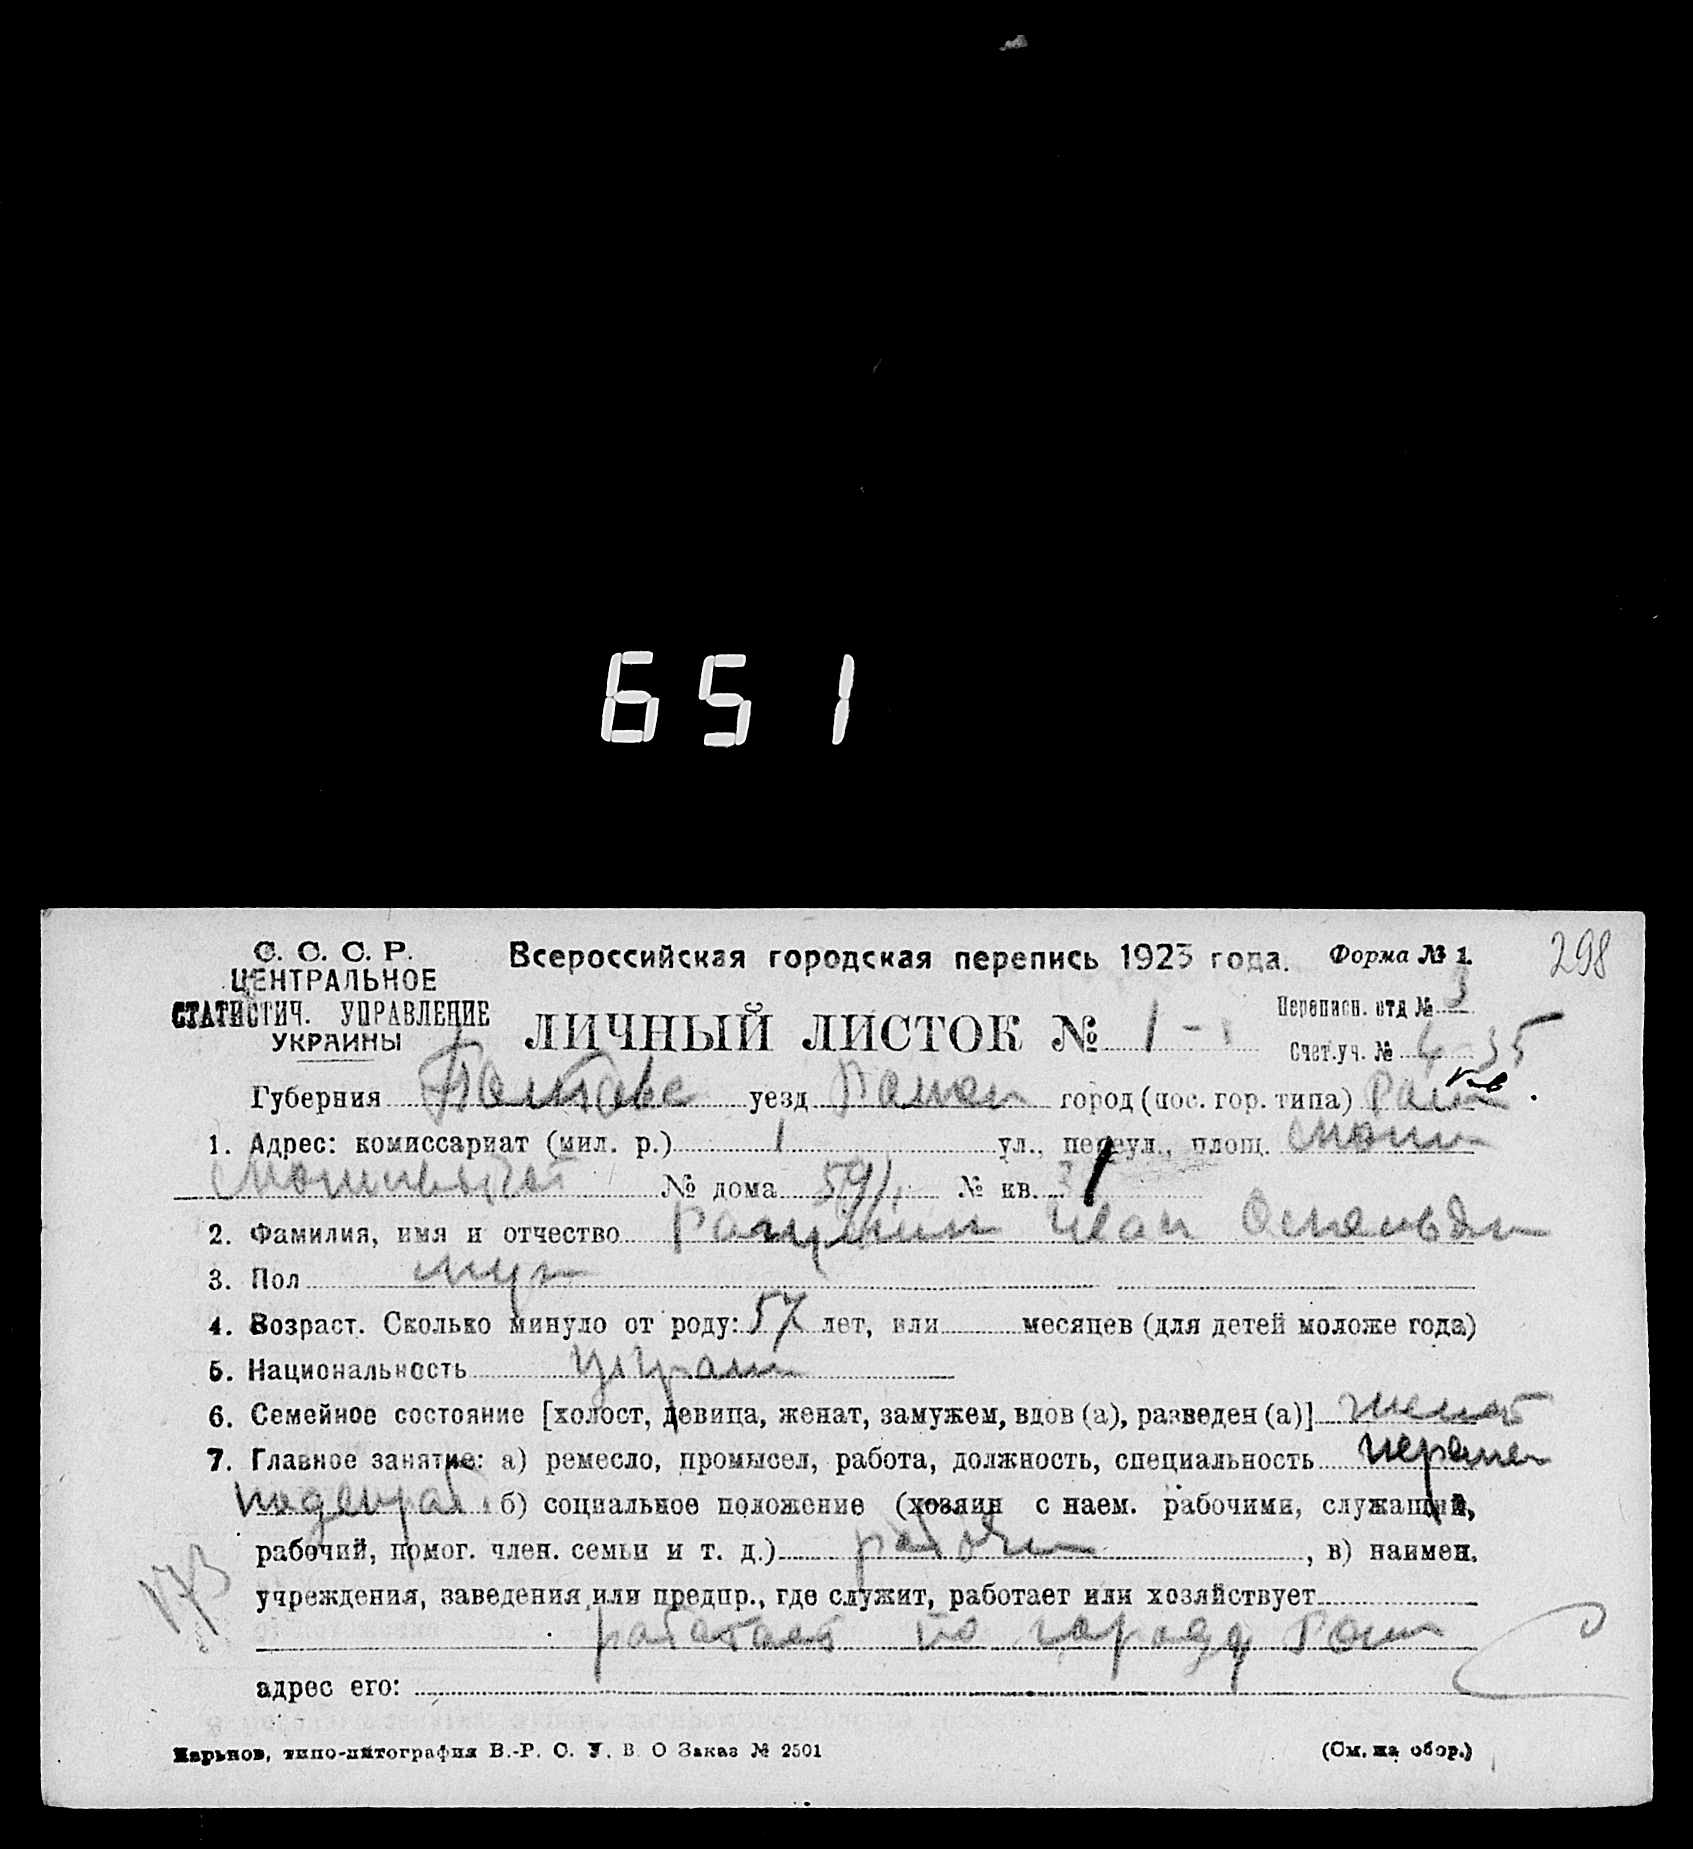 651
С. С. С. Р.
ЦЕНТРАЛЬНОЕ
СТАТИСТИЧ. УПРАВЛЕНИЕ
УКРАИНЫ
Всероссийская городская перепись 1923 года. Форма № 1.
298
ЛИЧНЫЙ ЛИСТОК № 1 -
Переписн. отд № 3
Счет.уч. № 4 35
Губерния Полтавс уезд Ромен город (пос. гор. типа) Ромн
1. Адрес: комиссариат (мил. р.) 1 ул., переул., площ.
№ дома 59/1 № кв. 1
2. Фамилия, имя и отчество Иван
3. Пол муж
4. Возраст. Сколько минуло от роду: 57 лет, или месяцев (для детей моложе года)
5. Национальность украин
6. Семейное состояние [холост, девица, женат, замужем, вдов (а), разведен (а)] женат
7. Главное занятие: а) ремесло, промысел, работа, должность, специальность
б) социальное положение (хозяин с наем. рабочими, служащий,
рабочий, помог. член. семьи и т. д.) рабочи , в) наимен.
учреждения, заведения или предпр., где служит, работает или хозяйствует
работает по городу Ромн
адрес его:
173
Харьков, типо-литография В.-Р. С. У. В О Заказ № 2501
(См. на обор.)